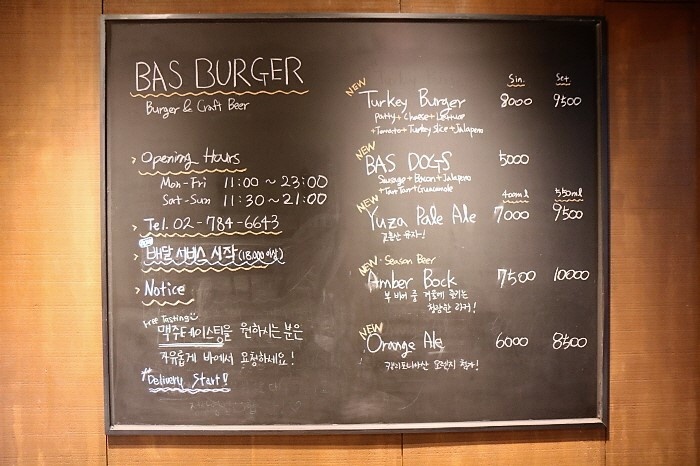 BAS BURGER
Burger & Craft Beer
> Opening Hours
Mon-Fri 11:00 ~ 23:00
Sat-Sun 11:30 ~ 21:00
> Tel. 02-784-6643
> 배달 서비스 시작 (18,000 이상)
> Notice
Free Tasting
맥주테이스팅을 원하시는 분은
자유롭게 바에서 요청하세요!
Delivery Start!
Sin. Set.
NEW
Turkey Burger 8000 9500
Patty + Cheese + Lettuce
+ Tomato + Turkey Slice + Jalapeno
NEW
BAS DOGS 5000
Sausage + Bacon + Jalapeno
+ Guacamole
400ml 550ml
NEW
Yuza Pale Ale 7000 9500
고흥산 유자!
NEW - Season Beer
Amber Bock 7500 10000
겨울에 즐기는
라거!
NEW
Orange Ale 6000 8500
캘리포니아산 오렌지 첨가!